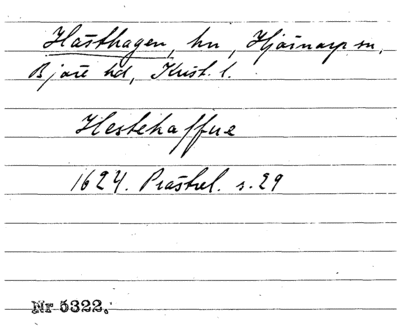 Hästhagen, hn, Hjärnarp sn,
Bjäre hd, Krist. l.
Hestehaffue
1624. Prästrel. s. 29
Nr 5322.